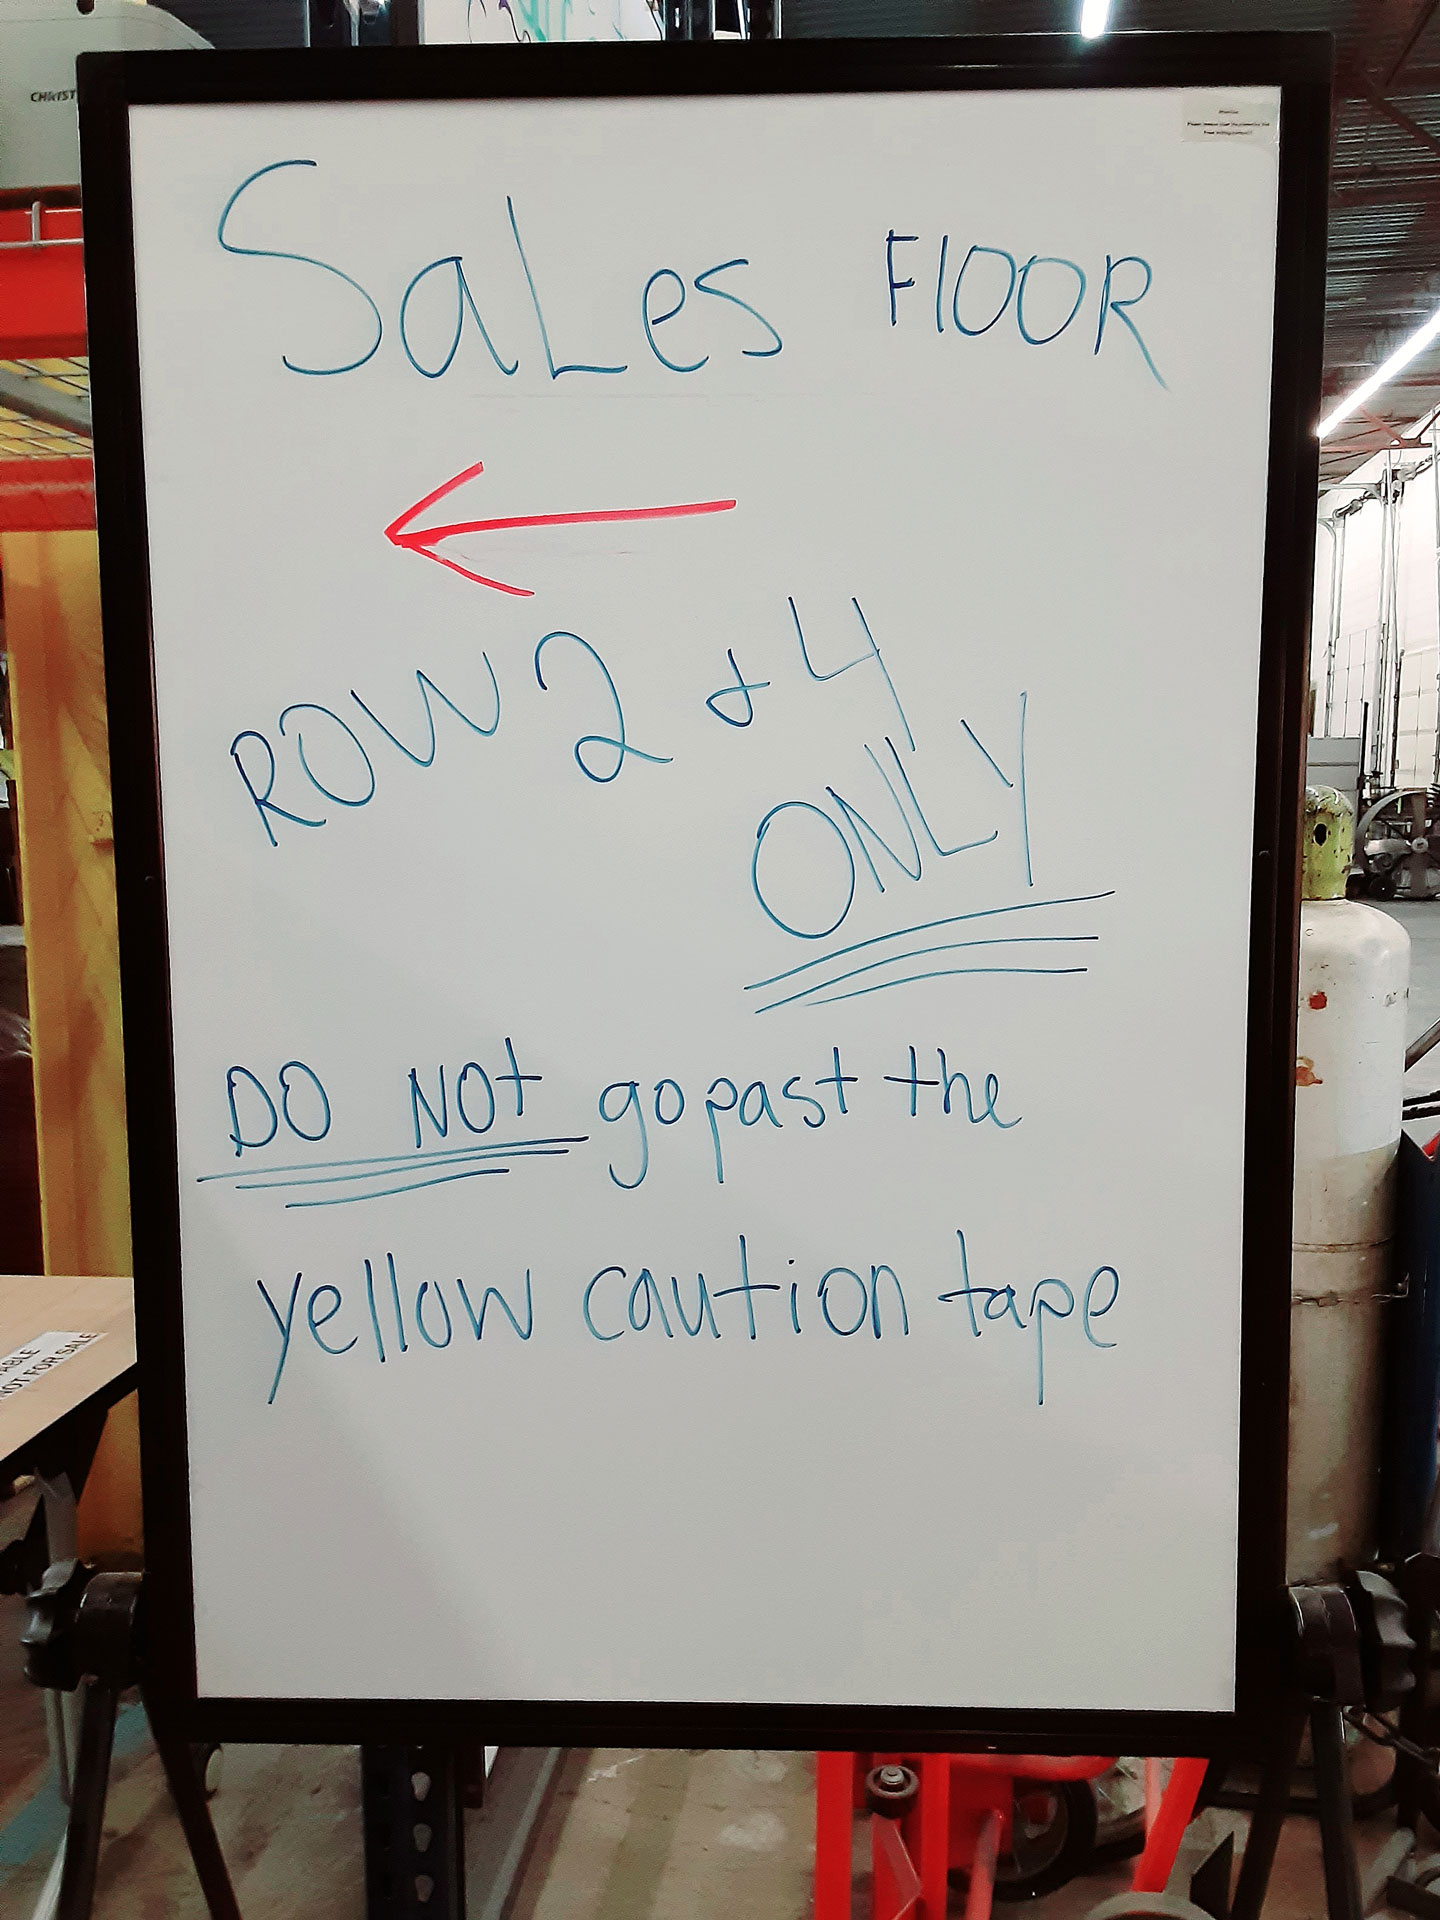 CHRIST
SaLes FlOOR
ROW 2 & 4
ONLY
DO NOt go past the
yellow caution tape
TABLE
NOT FOR SALE